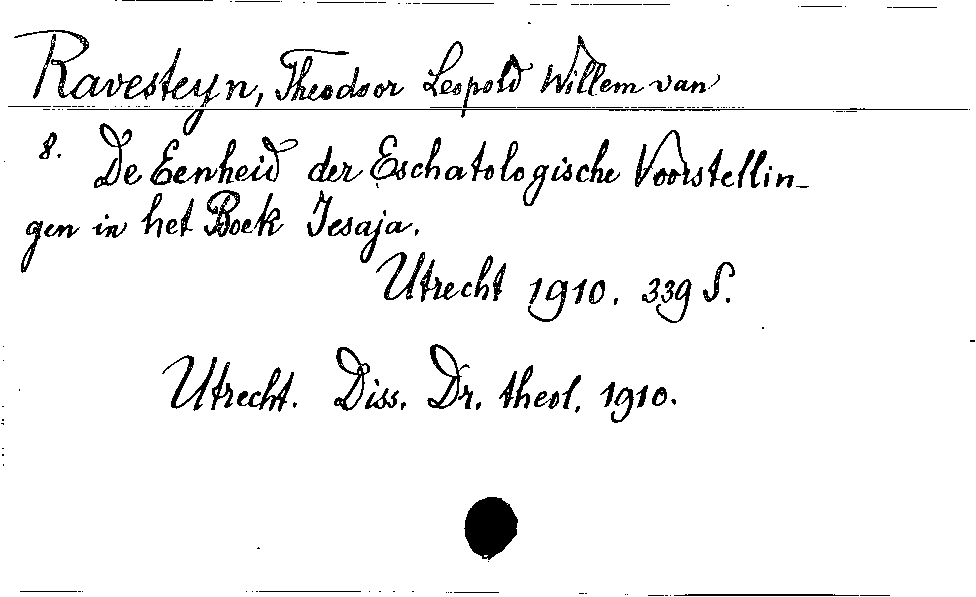 Ravesteyn, Theodoor Leopold Willem van
8. De Eenheid der Eschatologische Voorstellin-
gen in het Boek Jesaja.
Utrecht 1910. 339 S.
Utrecht. Diss. Dr. theol. 1910.